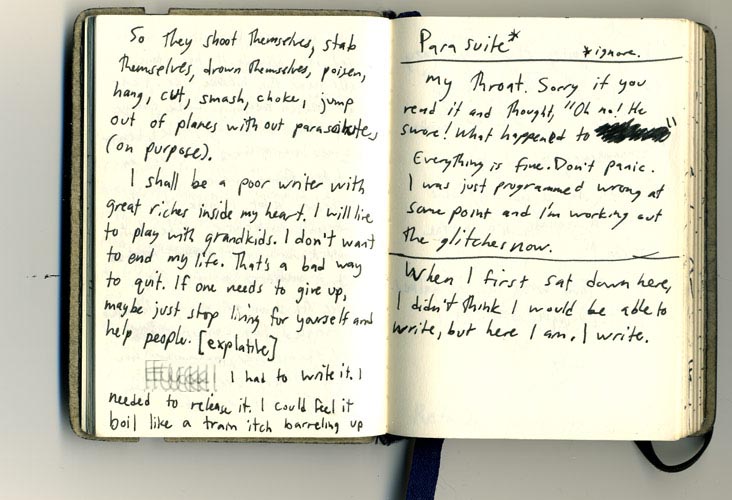 So they shoot themselves, stab
themselves, drown themselves, poison,
hang, cut, smash, choke, jump
out of planes with out parasuites
(on purpose).
I shall be a poor writer with
great riches inside my heart. I will live
to play with grandkids. I don't want
to end my life. That's a bad way
to quit. If one needs to give up,
maybe just stop living for yourself and
help people. [explative]
I had to write it. I
needed to release it. I could feel it
boil like a train itch barreling up
Parasuite* *ignore.
my throat. Sorry if you
read it and thought, "Oh no! He
swore! What happened to "
Everything is fine. Don't panic.
I was just programmed wrong at
some point and I'm working out
the glitches now.
When I first sat down here,
I didn't think I would be able to
write, but here I am. I write.